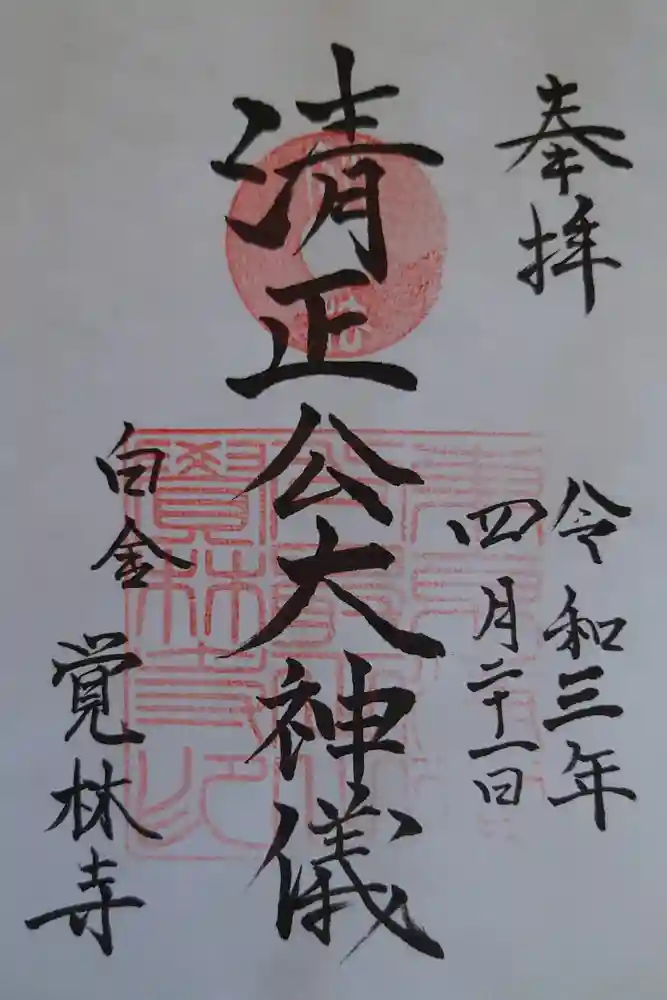 奉拝
令和三年
四月二十一日
清正公大神儀
白金
覚林寺